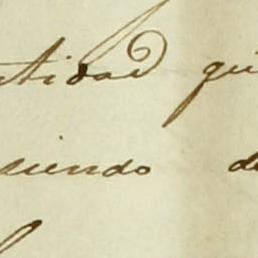 ntidad qu
siendo d